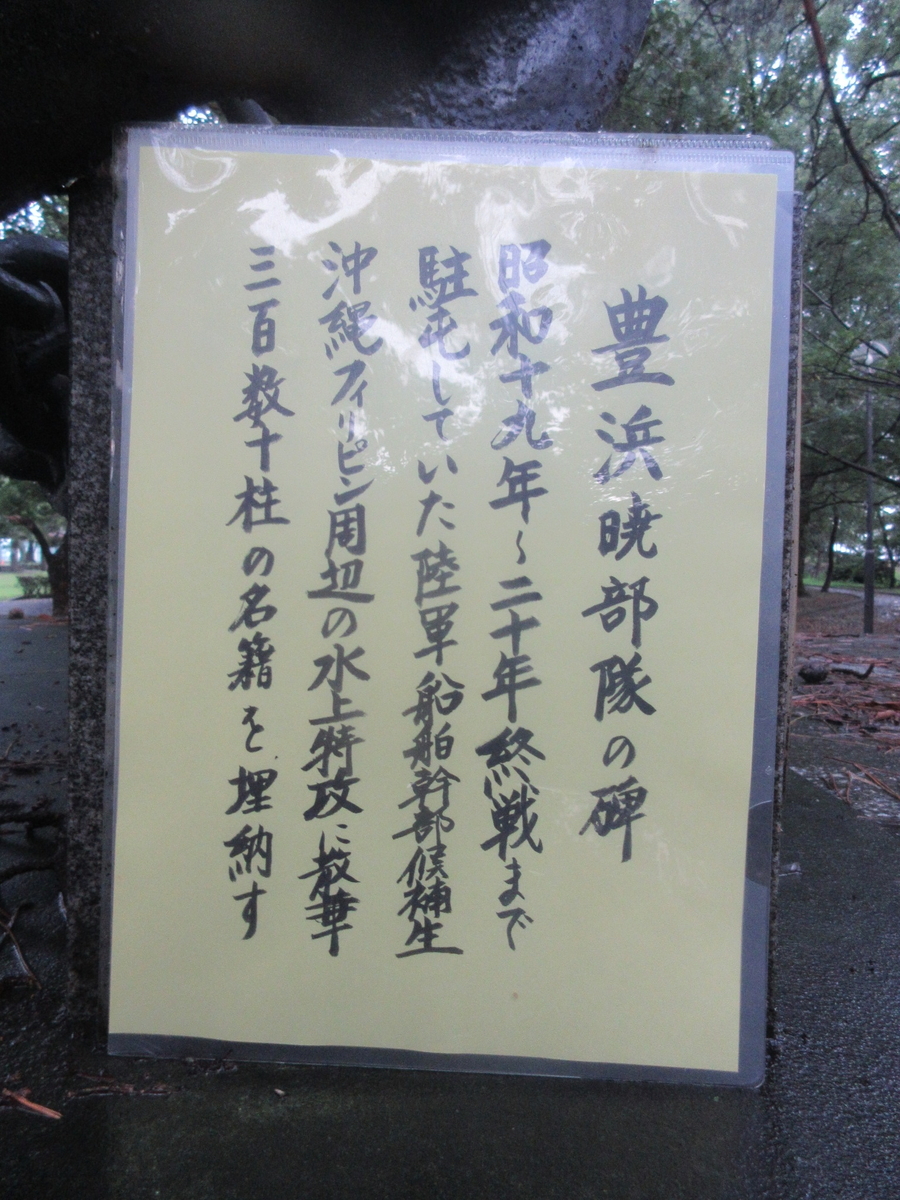 豊浜暁部隊の碑
昭和十九年～二十年終戦まで
駐屯していた陸軍船舶幹部候補生
沖縄フィリピン周辺の水上特攻に散華
三百数十柱の名籍を埋納す